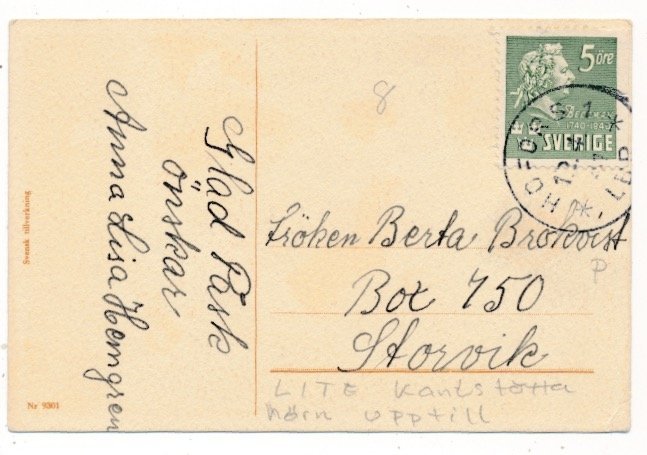 8
5 öre
Bellman
1740-194
SVERIGE
HOFORS
12
LBP
Glad Påsk
önskar
Anna Lisa Hemgren
Fröken Berta Brokvist
P
Box 750
Storvik
LITE kantstötta
hörn upptill
Svensk tillverkning
Nr 9301